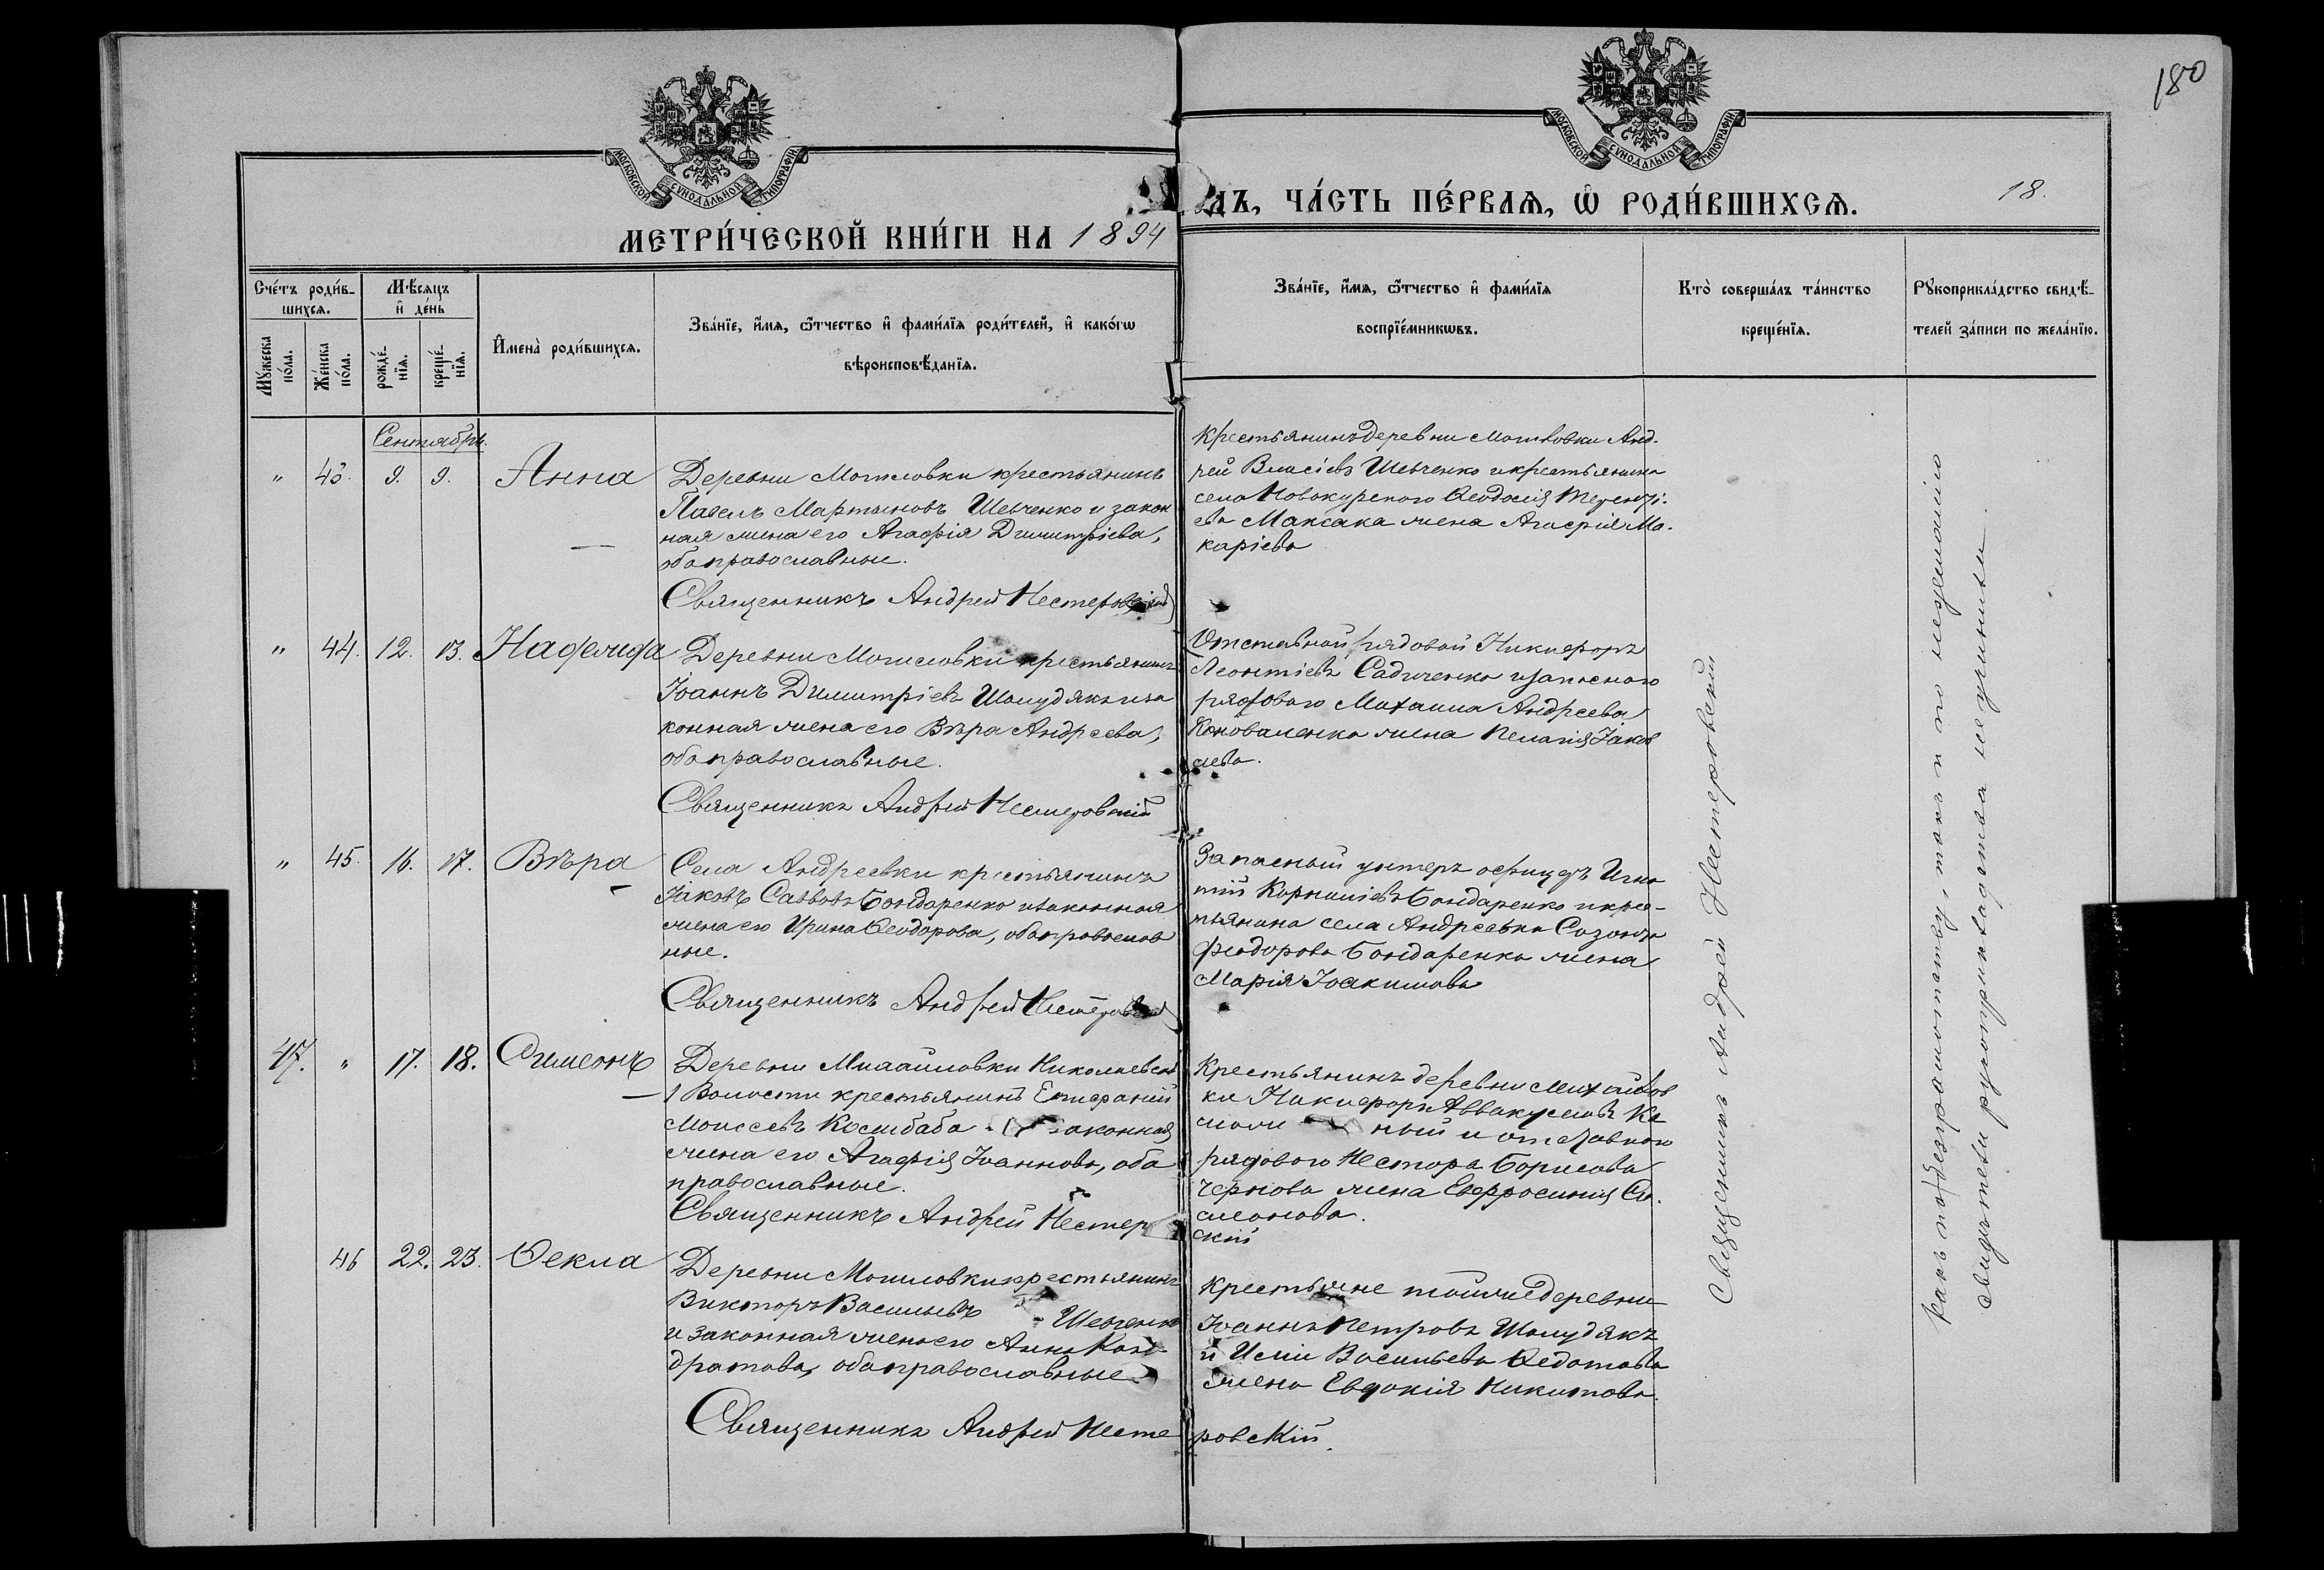 180
МОСКОВСКОЙ СѴНОДАЛЬНОЙ ТИПОГРАФІИ
МОСКОВСКОЙ СѴНОДАЛЬНОЙ ТИПОГРАФІИ
МЕТРИ́ЧЕСКОЙ КНИ́ГИ НА 1894
ДЪ, ЧА́СТЬ ПЕ́РВАѦ, Ѡ҆ РОДИ́ВШИХСѦ.
18.
Сче́тъ роди́в-
шихсѧ.
Мꙋ́жеска по́ла.
Же́нска по́ла.
Мѣ́сѧцъ
и҆ де́нь
рожде́-
нїѧ.
креще́-
нїѧ.
И҆мена̀ роди́вшихсѧ.
Зва́нїе, и҆́мѧ, ѻ҆́тчество и҆ фами́лїѧ роди́телей, и҆ како́гѡ
вѣроисповѣ́данїѧ.
Зва́нїе, и҆́мѧ, ѻ҆́тчество и҆ фами́лїѧ
воспрїе́мникѡвъ.
Кто̀ соверша́лъ та́инство
креще́нїѧ.
Рꙋкоприкла́дство свидѣ́-
телей за́писи по жела́нїю.
Сентябрь.
" 43. 9. 9. Анна
Деревни Могиловки крестьянинъ
Павелъ Мартыновъ Шевченко и закон
ная жена его Агафія Димитріева,
оба православные.
Священникъ Андрей Нестеровскій
Крестьянинъ деревни Могиловки Анд-
рей Власіевъ Шевченко и крестьянина
села Новокурского Ѳеодосія Терент
ева Максака жена Агафія Ма-
каріева
" 44. 12. 13.
Деревни Могиловки крестьянинъ
Іоаннъ Димитріевъ Шолудякъ и за
конная жена его Вѣра Андреева,
оба православные.
Священникъ Андрей Нестеровскій
Отставной рядовой Никифоръ
Леонтіевъ Садиченко и запасного
рядового Михаила Андреева
Коноваленка жена Пелагія Іаков
лева.
" 45. 16. 17. Вѣра
Села Андреевки крестьянинъ
Іаковъ Саввовъ Бондаренко и законная
жена его Ирина Ѳеодорова, оба православ
ные.
Священникъ Андрей Нестеровскій
Запасный унтеръ офицеръ Игна
тій Корниліевъ Бондаренко и крес-
тьянина села Андреевки Созонта
Феодорова Бондаренка жена
Марія Іоакимова
47. " 17. 18. Симеонъ
Деревни Михайловки Николаевской
Волости крестьянинъ Епифаній
Моисеевъ Косибаба законная
жена его Агафія Іоаннова, оба
православные.
Священникъ Андрей Нестер
ский
Крестьянинъ деревни Михайлов
ки Никифоръ Аввакумовъ
ный и отставного
рядового Нестора Борисова
Чернова жена Евфросинія Си-
меонова.
46 22. 23. Ѳекла
Деревни Могиловки крестьянинъ
Викторъ Васильевъ Шевченко
и законная жена его Анна Кон-
дратова, оба православные
Священникъ Андрей Несте
ровскій.
Крестьяне той же деревни
Іоаннъ Петровъ Шолудякъ
и Иліи Васильева Ѳедотова
жена Евдокія Никитова.
Священникъ Андрей Нестеровскій
Какъ по безграмотству, такъ и по нежеланію
свидѣтели рукоприкладства не учинили.